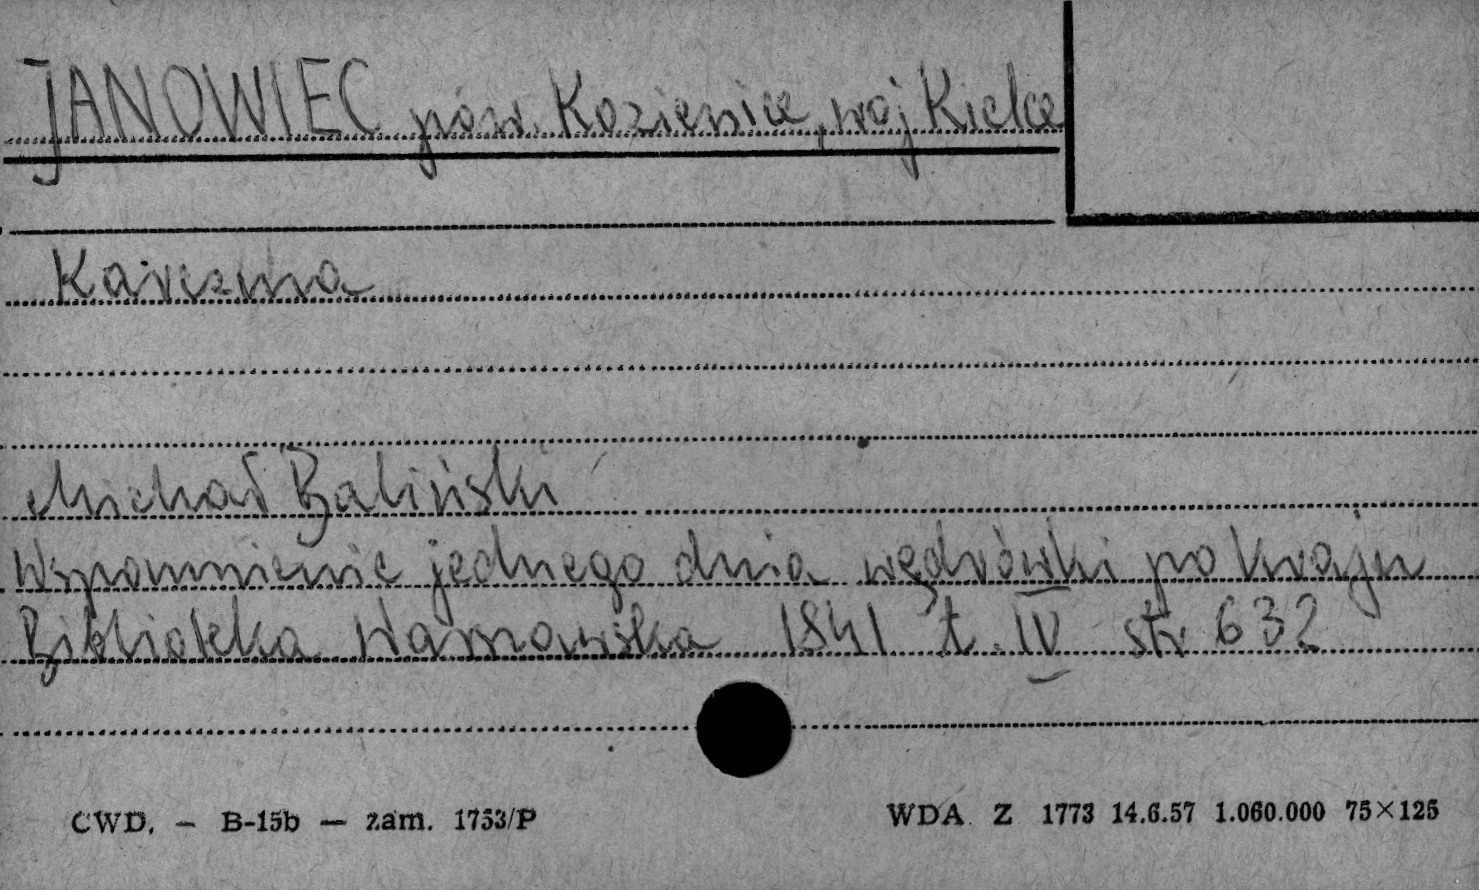 JANOWIEC pow. Kozienice, woj Kielce
Karczma
Michał Baliński
Wspomnienie jednego dnia wędrówki po kraju
Biblioteka Warszawska 1841 t. IV str 632
CWD. — B-15b — zam. 1753/P
WDA Z 1773 14.6.57 1.060.000 75×125